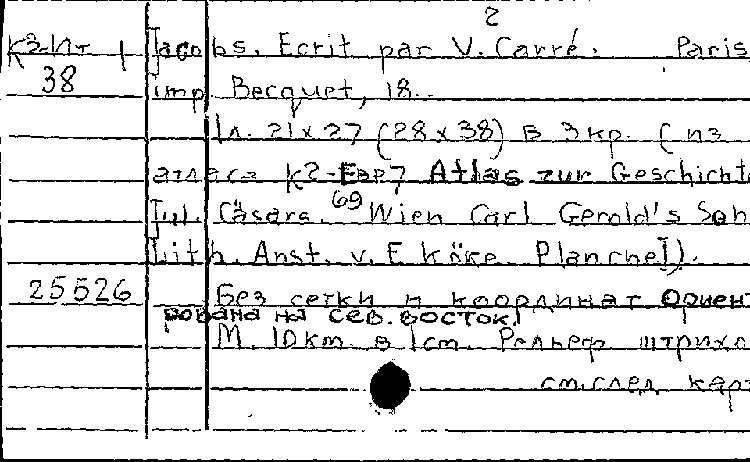 2
К2-Ит 1 Jacobs. Ecrit par V. Carré. Paris
38 imp. Becquet, 18..
1л. 21x27 (28x38) в 3 кр. (из
атласа К2-Евр7 Atlas zur Geschicht
69
Jul. Cäsars. Wien Carl Gerold's Soh
Lith. Anst. v. F. Köke. Planche I).
25526 Без сетки и координат Ориен
рована на сев. восток.
М. 10 km. в 1 cm. Рельеф штрихо
см. след. карт